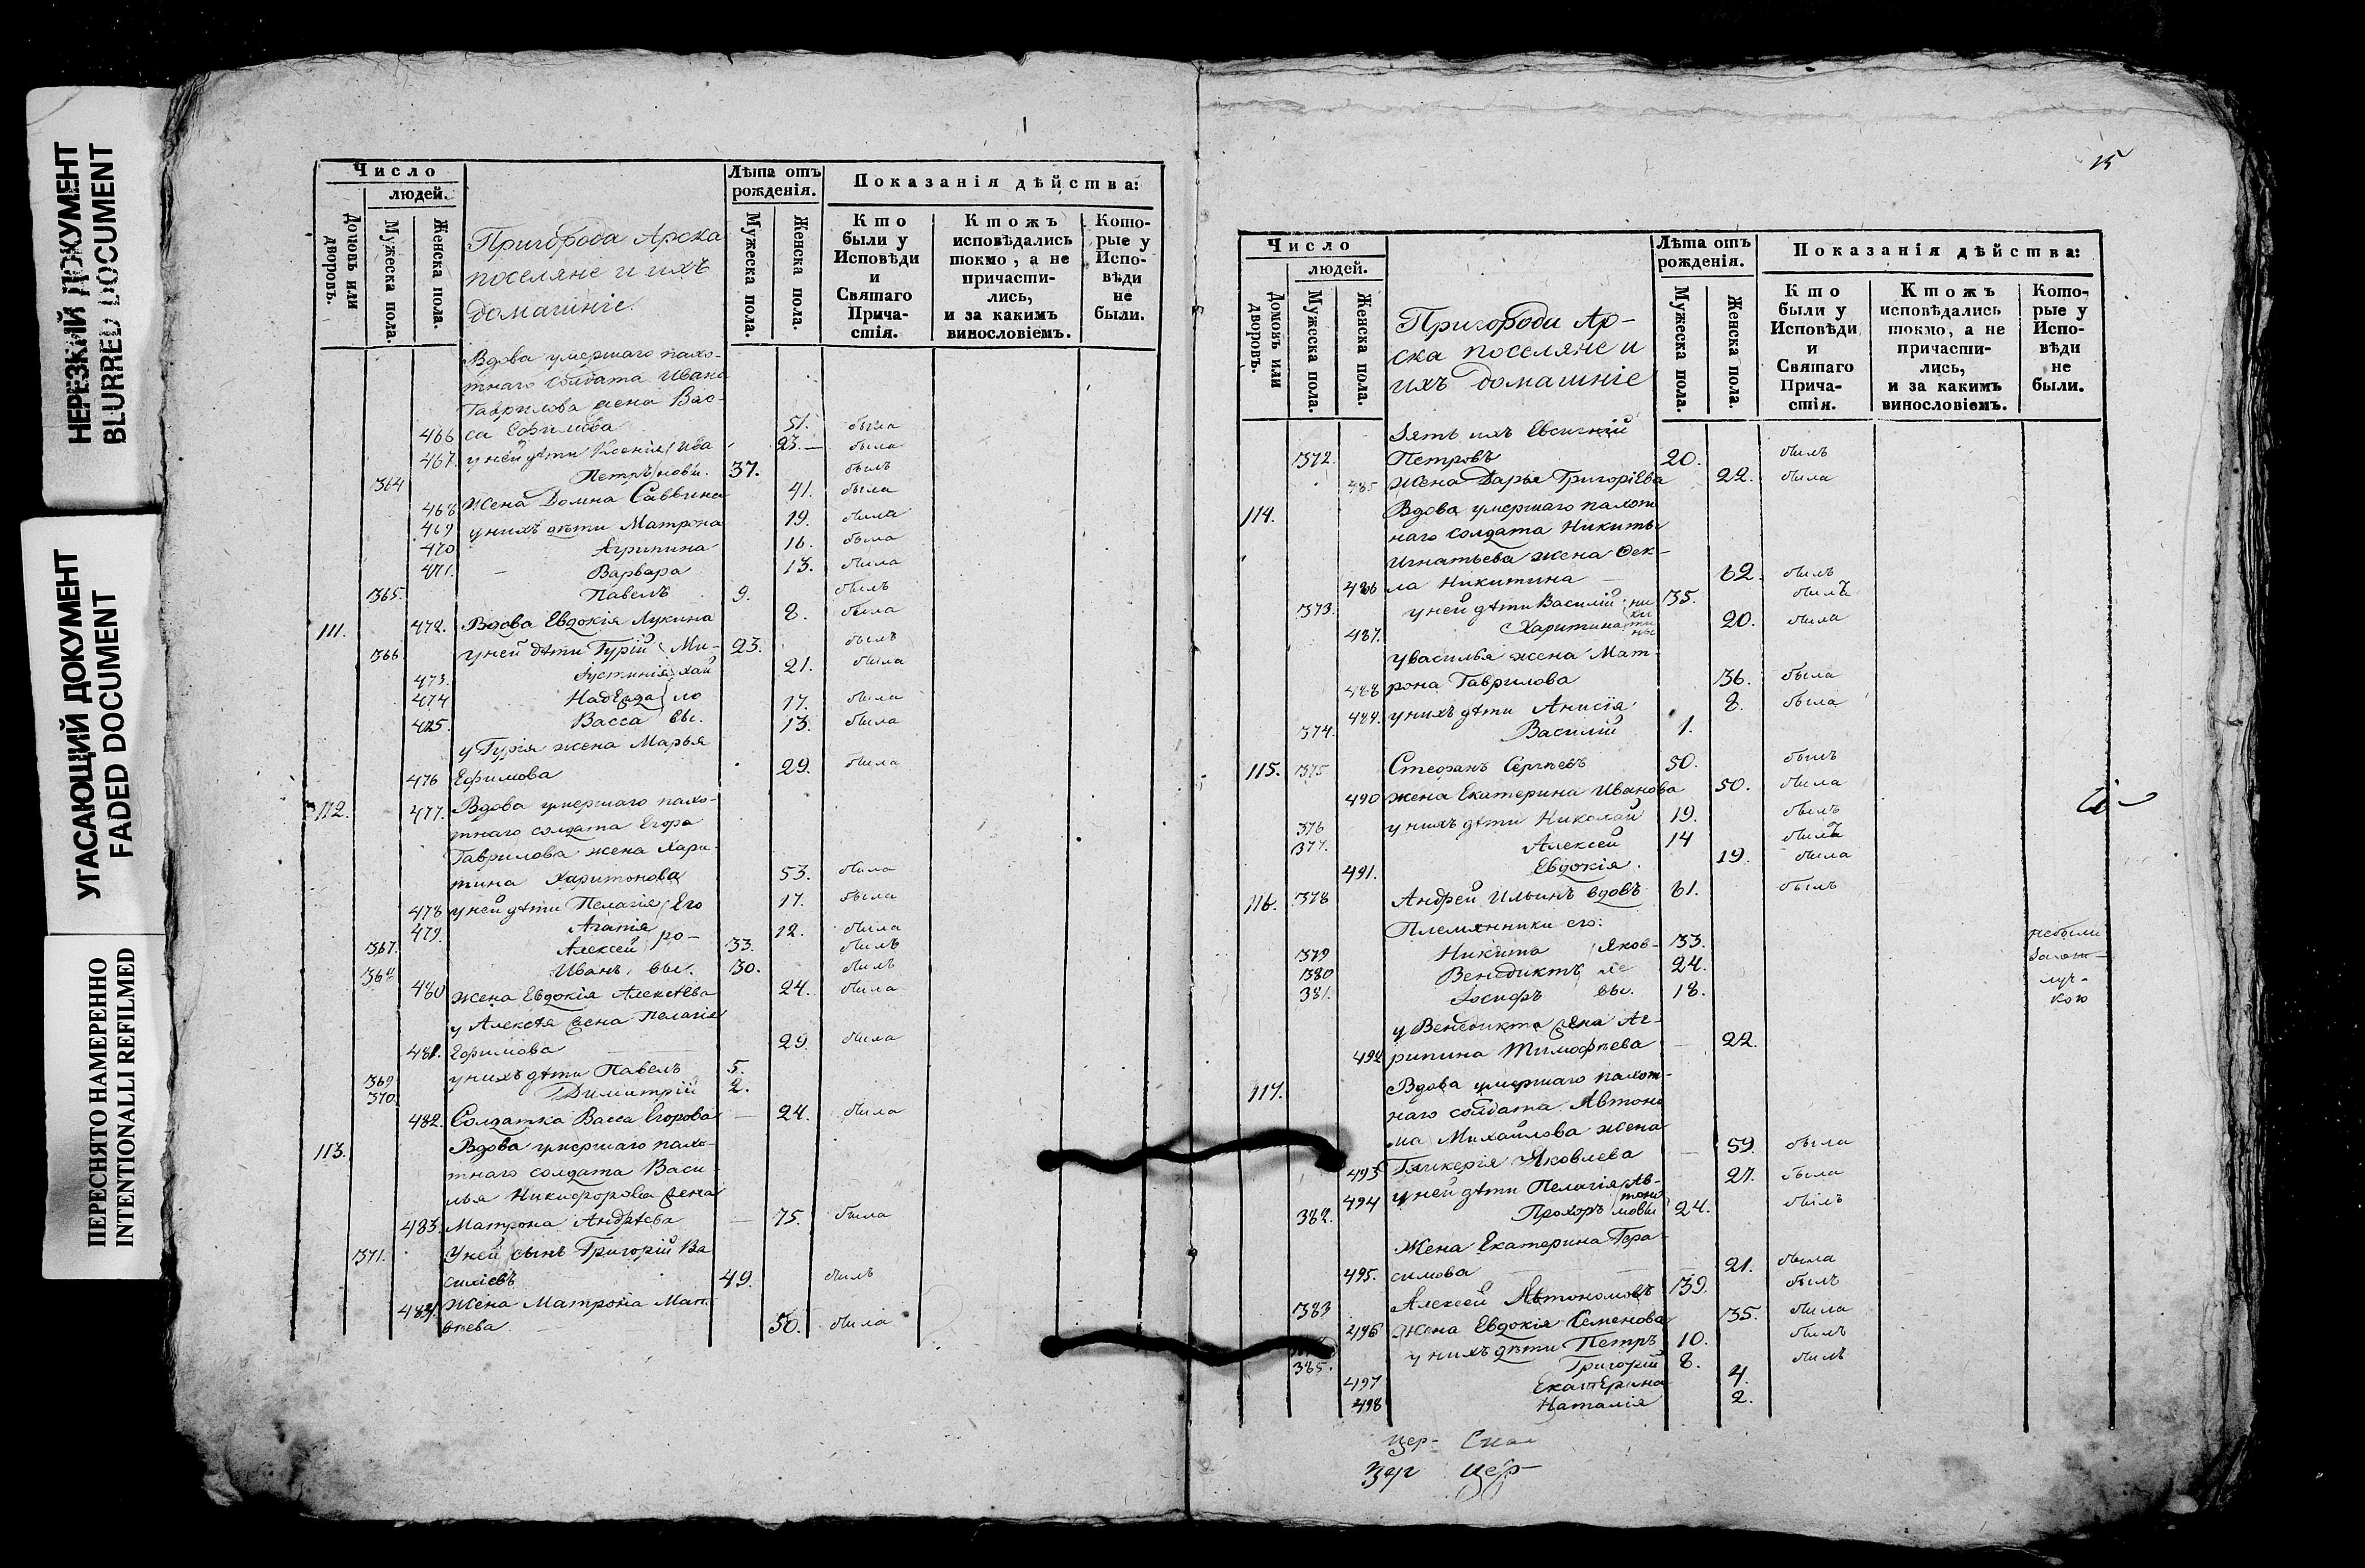 НЕРЕЗКИЙ ДОКУМЕНТ
BLURRED DOCUMENT
УГАСАЮЩИЙ ДОКУМЕНТ
FADED DOCUMENT
ПЕРЕСНЯТО НАМЕРЕННО
INTENTIONALLI REFILMED
Число
людей.
Домовъ или дворовъ.
Мужеска пола.
Женска пола.
Пригорода Арска
поселяне и ихъ
домашніе.
Лѣта отъ рожденія.
Мужеска пола.
Женска пола.
Показанія дѣйства:
Кто были у Исповѣди и Святаго Прича-стія.
Ктожъ исповѣдались токмо, а не причасти-лись, и за какимъ винословіемъ.
Кото-рые у Испо-вѣди не были.
Вдова умершаго пахо-
тнаго солдата Ивана
Гаврилова жена Вас-
466 са Ефимова 51. была
467. у ней дѣти Ксенія Ива 23. была
364 Петръ новы. 37. былъ
468 Жена Домна Саввина 41. была
469 у нихъ дѣти Матрона 19. была
470 Агрипина 16. была
471. Варвара 13. была
365. Павелъ 9. былъ
111. 472. Вдова Евдокія Лукина 8. была
366 у ней дѣти Гурій Ми- 23. былъ
473. Іустинія хай 21. была
474 Надежда ло 17. была
475. Васса вы. 13. была
у Гурія жена Марья
476 Ефимова 29. была
112. 477. Вдова умершаго пахо-
тнаго солдата Егора
Гаврилова жена Хари-
тина Харитонова 53. была
478 у ней дѣти Пелагія Его 17. была
479. Агатія 12. была
367. Алексей ро- 33. былъ
368 Иванъ вы. 30. былъ
480 жена Евдокія Алексѣева 24. была
у Алексѣя жена Пелагія
481. Ефимова 29. была
369 у нихъ дѣти Павелъ 5.
370. Димитрій 2.
482. Солдатка Васса Егорова 24. была
113. Вдова умершаго пахо-
тнаго солдата Васи-
лья Никифорова жена
483. Матрона Андрѣева 75. была
371. У ней сынъ Григорій Ва
силіевъ 49. былъ
484. Жена Матрона Мат.
вѣева 50. была
15
Число
людей.
Домовъ или дворовъ.
Мужеска пола.
Женска пола.
Пригорода Ар-
ска поселяне и
ихъ домашніе
Лѣта отъ рожденія.
Мужеска пола.
Женска пола.
Показанія дѣйства:
Кто были у Исповѣди и Святаго Прича-стія.
Ктожъ исповѣдались токмо, а не причасти-лись, и за какимъ винословіемъ.
Кото-рые у Испо-вѣди не были.
Зять ихъ Евсигній
372. Петровъ 20. былъ
485 Жена Дарья Григоріева 22. была
114. Вдова умершаго пахот
наго солдата Никиты
Игнатьева жена Фек-
486 ла Никитина 62. былъ
373. у ней дѣти Василій ни 35. былъ
487. Харитина ки ти ны 20. была
у Василья жена Мат-
488 рона Гаврилова 36. была
489. у нихъ дѣти Анисія 8. была
374. Василій 1.
115. 375 Стефанъ Сергѣевъ 50. былъ
490 жена Екатерина Иванова 50. была
376 у нихъ дѣти Николай 19. былъ
377. Алексей 14 былъ
491. Евдокія. 19. была
116. 378 Андрей Ильинъ вдовъ 61. былъ
Племянники его:
379 Никита Яков- 33. небыли
380 Венедиктъ ле 24. за от-
381. Іосифъ вы. 18. луч-
кою
у Венедикта жена Аг-
492 рипина Тимофѣева 22.
117. Вдова умершаго пахот-
наго солдата Автоно
ма Михайлова жена
493 Гликерія Яковлева 59. была
494 у ней дѣти Пелагія Ав- 27. была
382. Прохоръ тоно мовы 24. былъ
Жена Екатерина Гера-
495. симова 21. была
383 Алексей Автономовъ 39. былъ
496 жена Евдокія Семенова 35. была
у нихъ дѣти Петръ 10. былъ
385. Григорій 8. былъ
497 Екатерина 4.
498 Наталія 2.